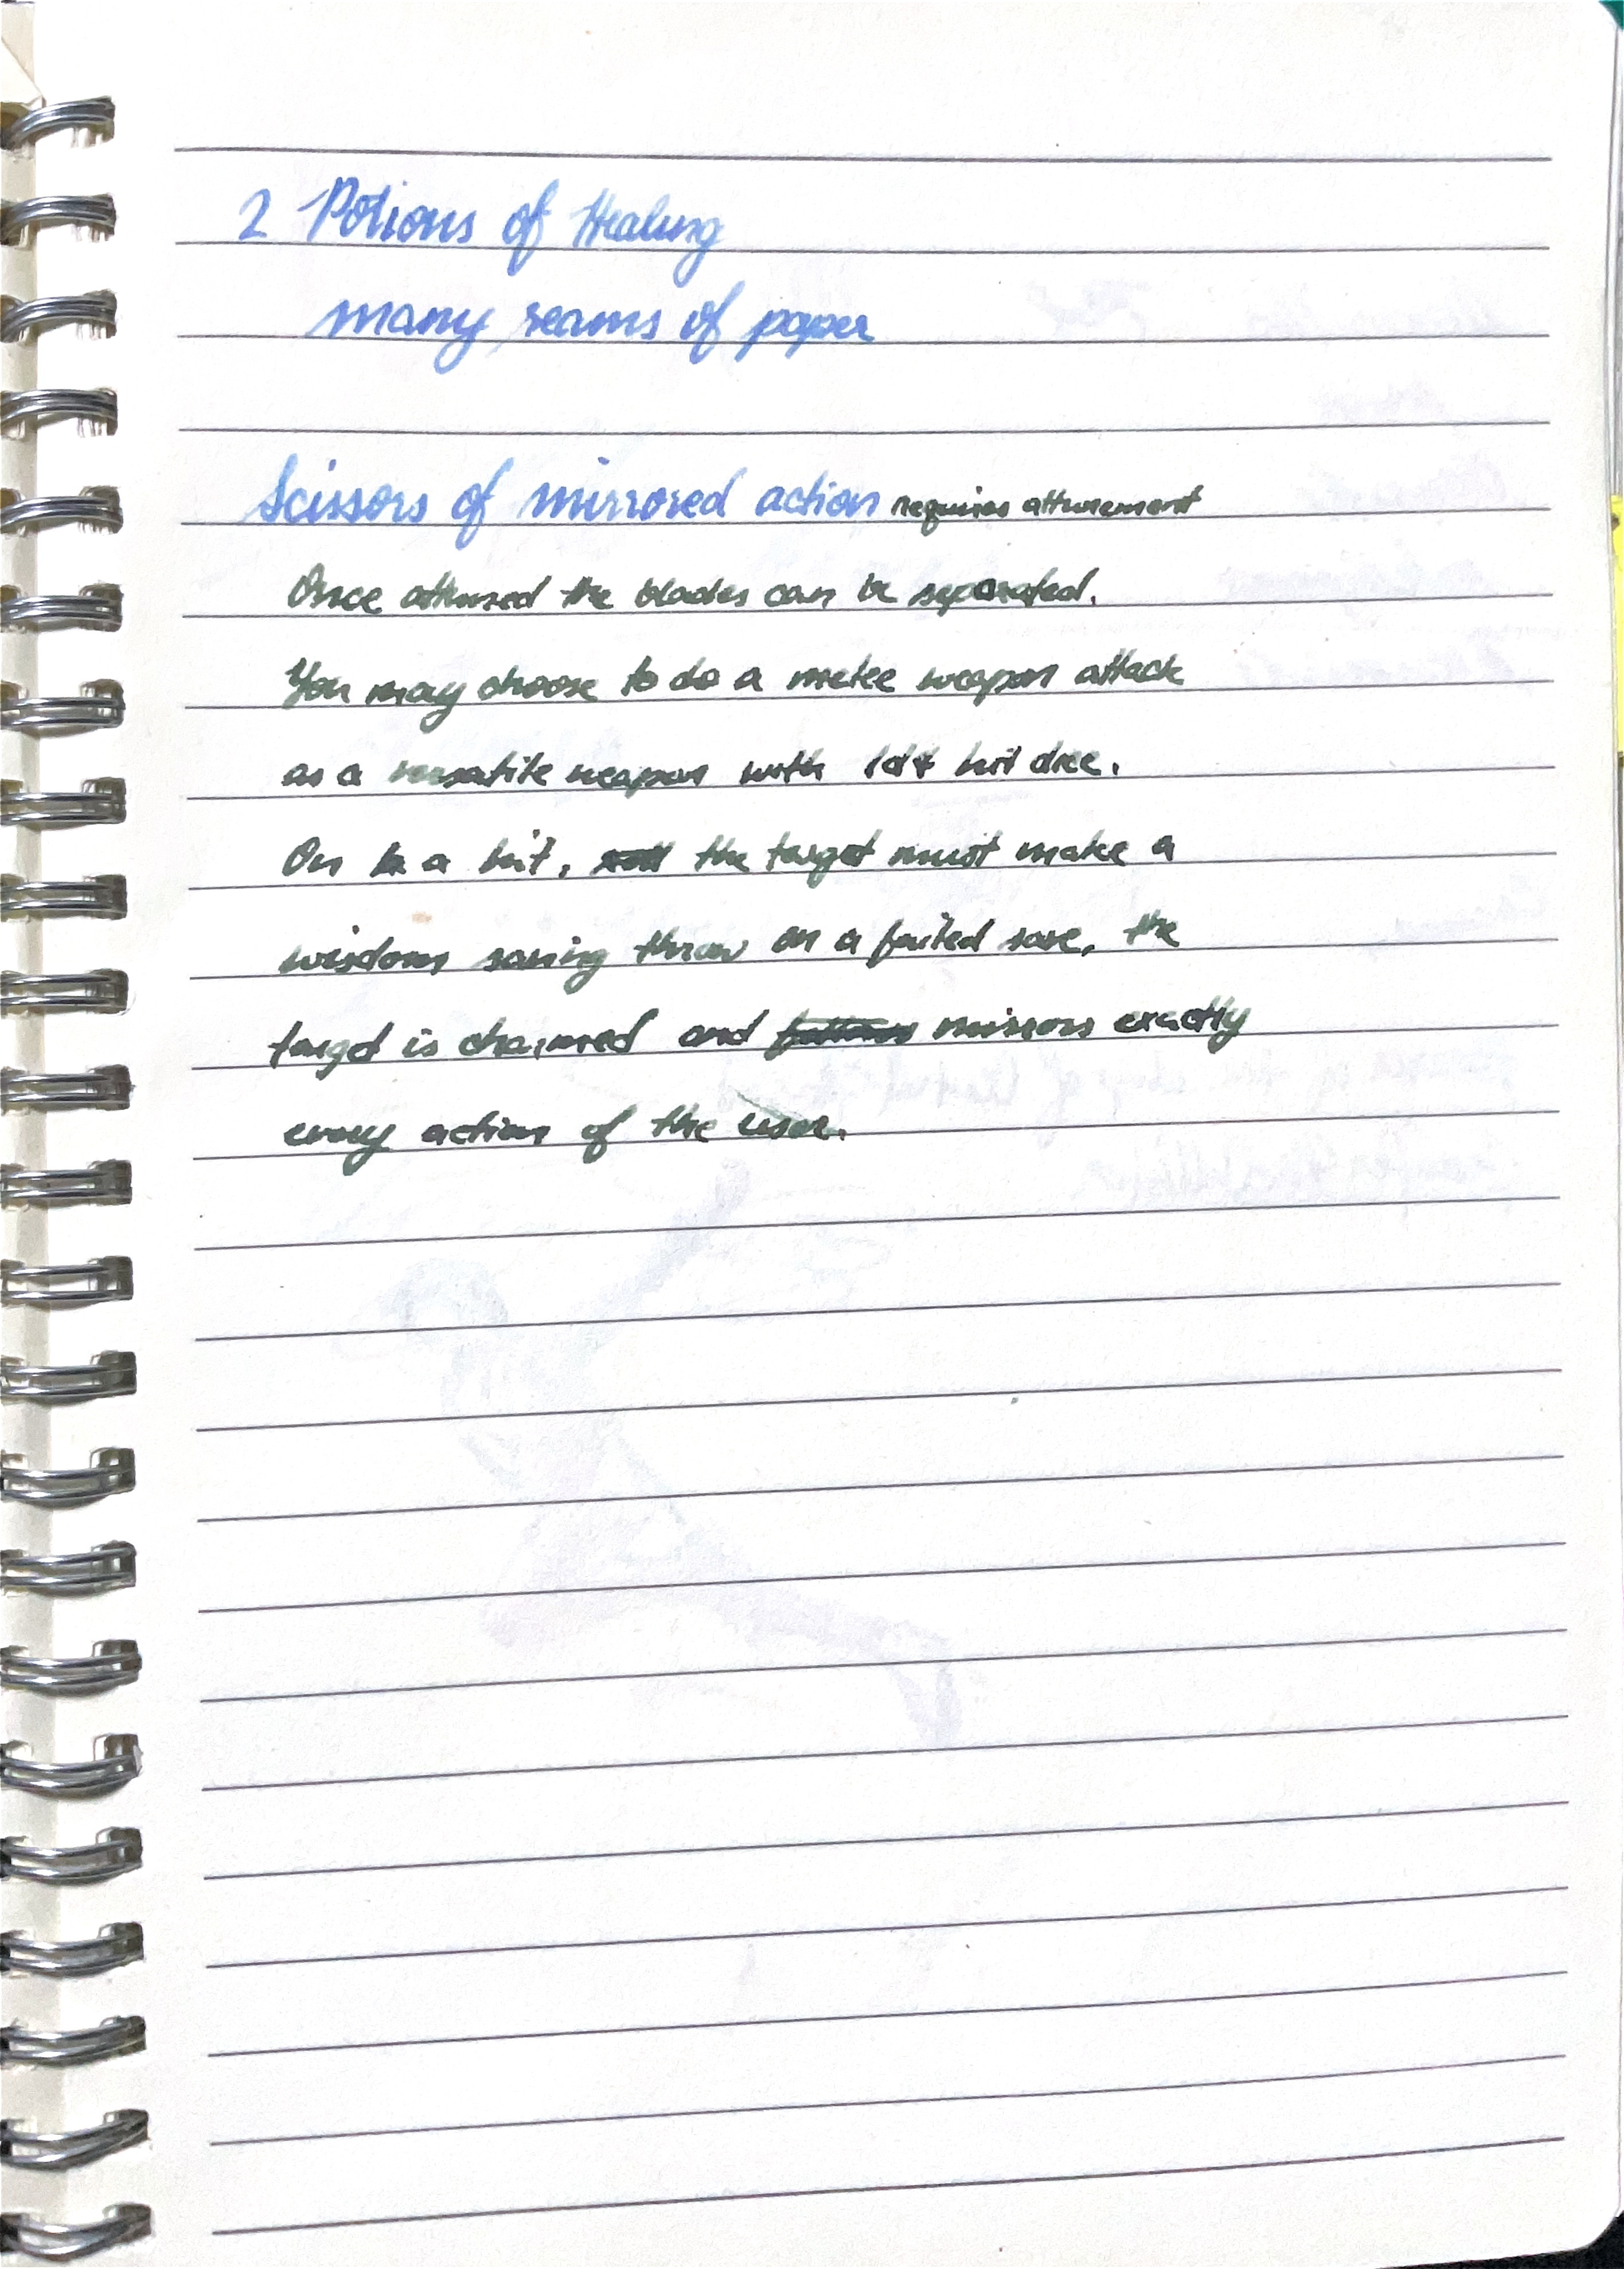 2 Potions of Healing
many reams of paper
Scissors of mirrored action requires attunement
Once attuned the blades can be separated.
You may choose to do a melee weapon attack
as a versatile weapon with 1d4 hit dice.
On a hit, the target must make a
wisdom saving throw on a failed save, the
target is charmed and mirrors exactly
every action of the user.